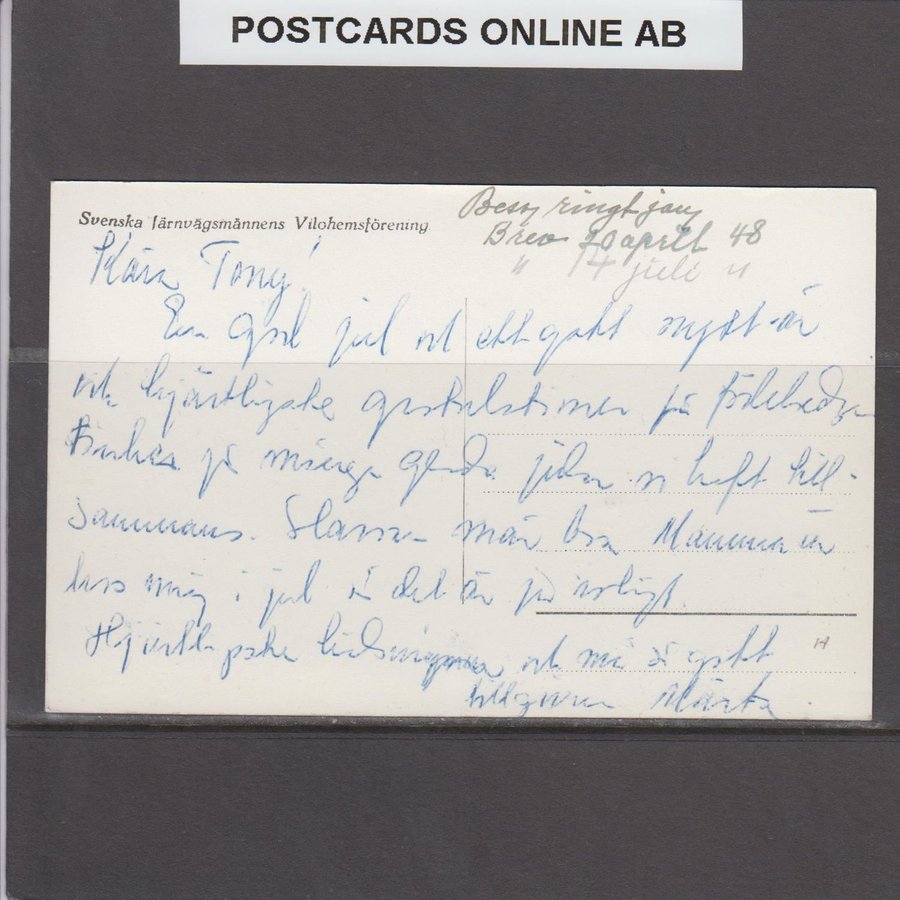 POSTCARDS ONLINE AB
Svenska Järnvägsmännens Vilohemsförening
Besv ringt jan
Brev 20 april 48
" 14 juli "
Kära Tony!
En god jul och ett gott nytt år
och hjärtligaste gratulationer på födelsedagen
Tänker på många glada jular vi haft till-
sammans. mår bra Mamma är
hos mig i jul så det är så roligt.
Hjärtligaste hälsningar och må så gott
tillgivna Märta